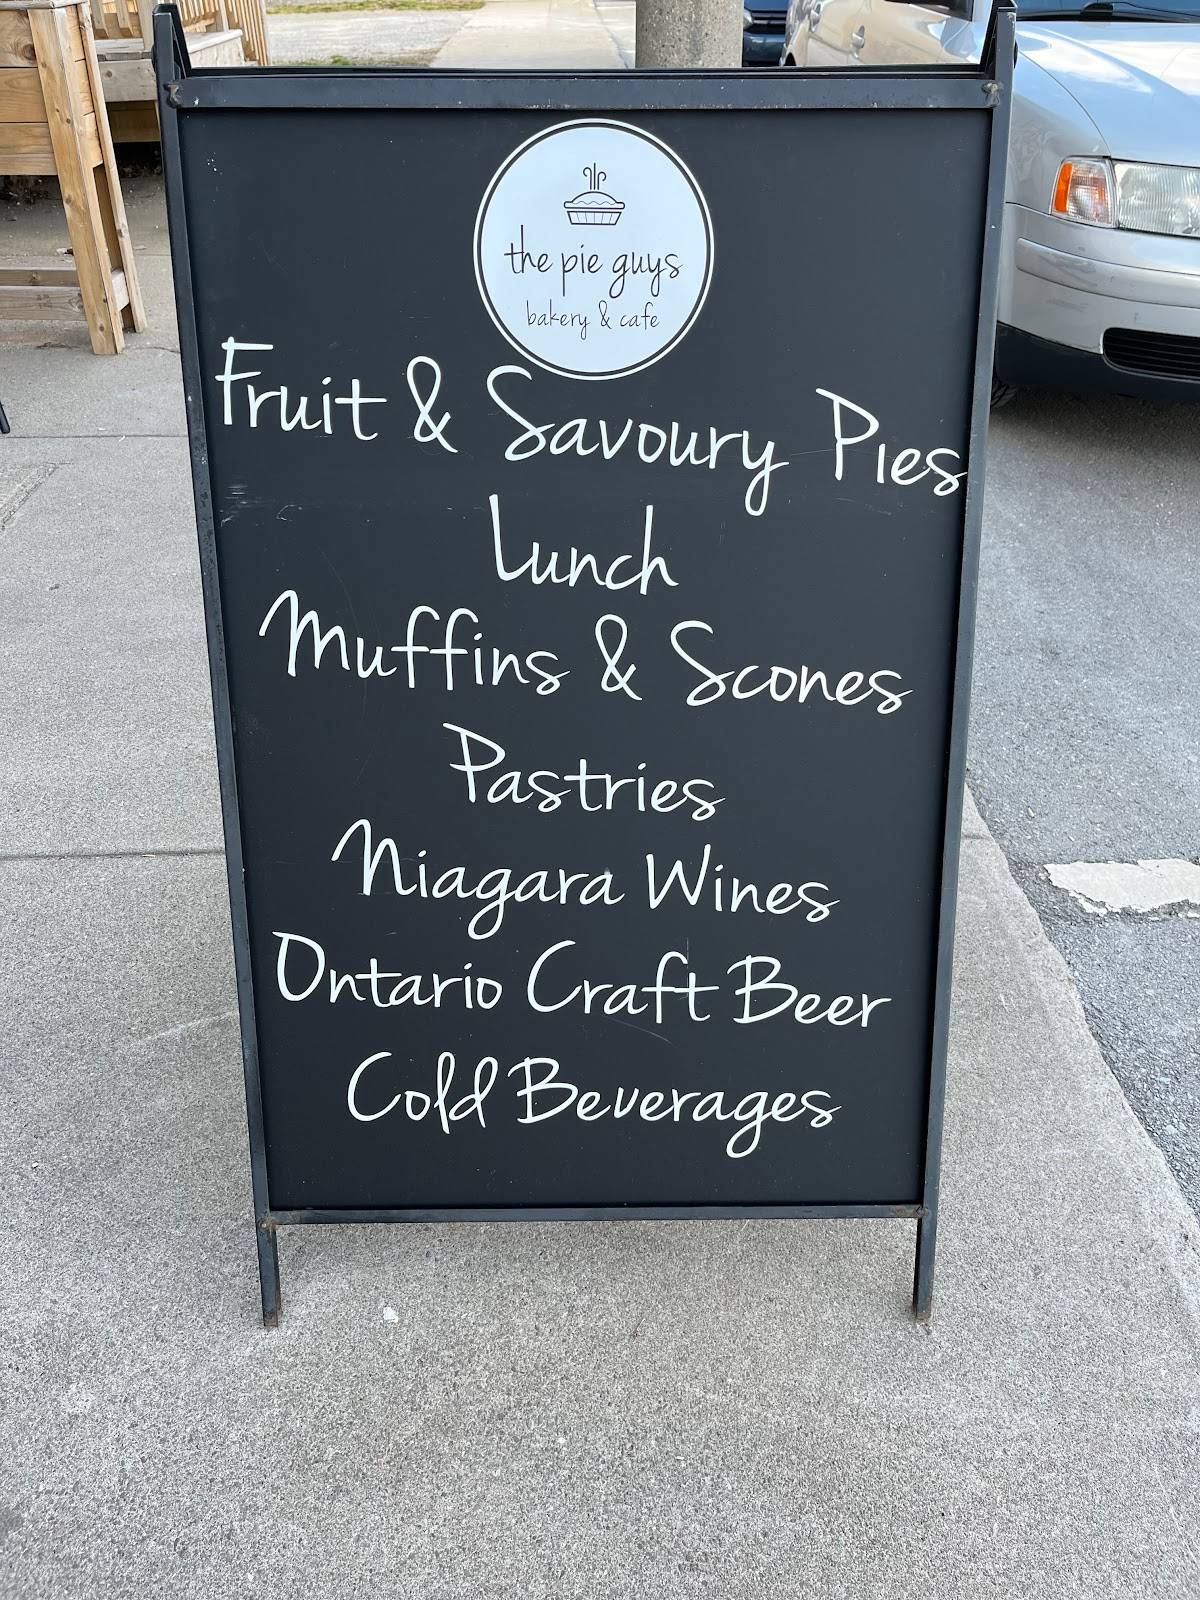 the pie guys
bakery & cafe
Fruit & Savoury Pies
Lunch
Muffins & Scones
Pastries
Niagara Wines
Ontario Craft Beer
Cold Beverages